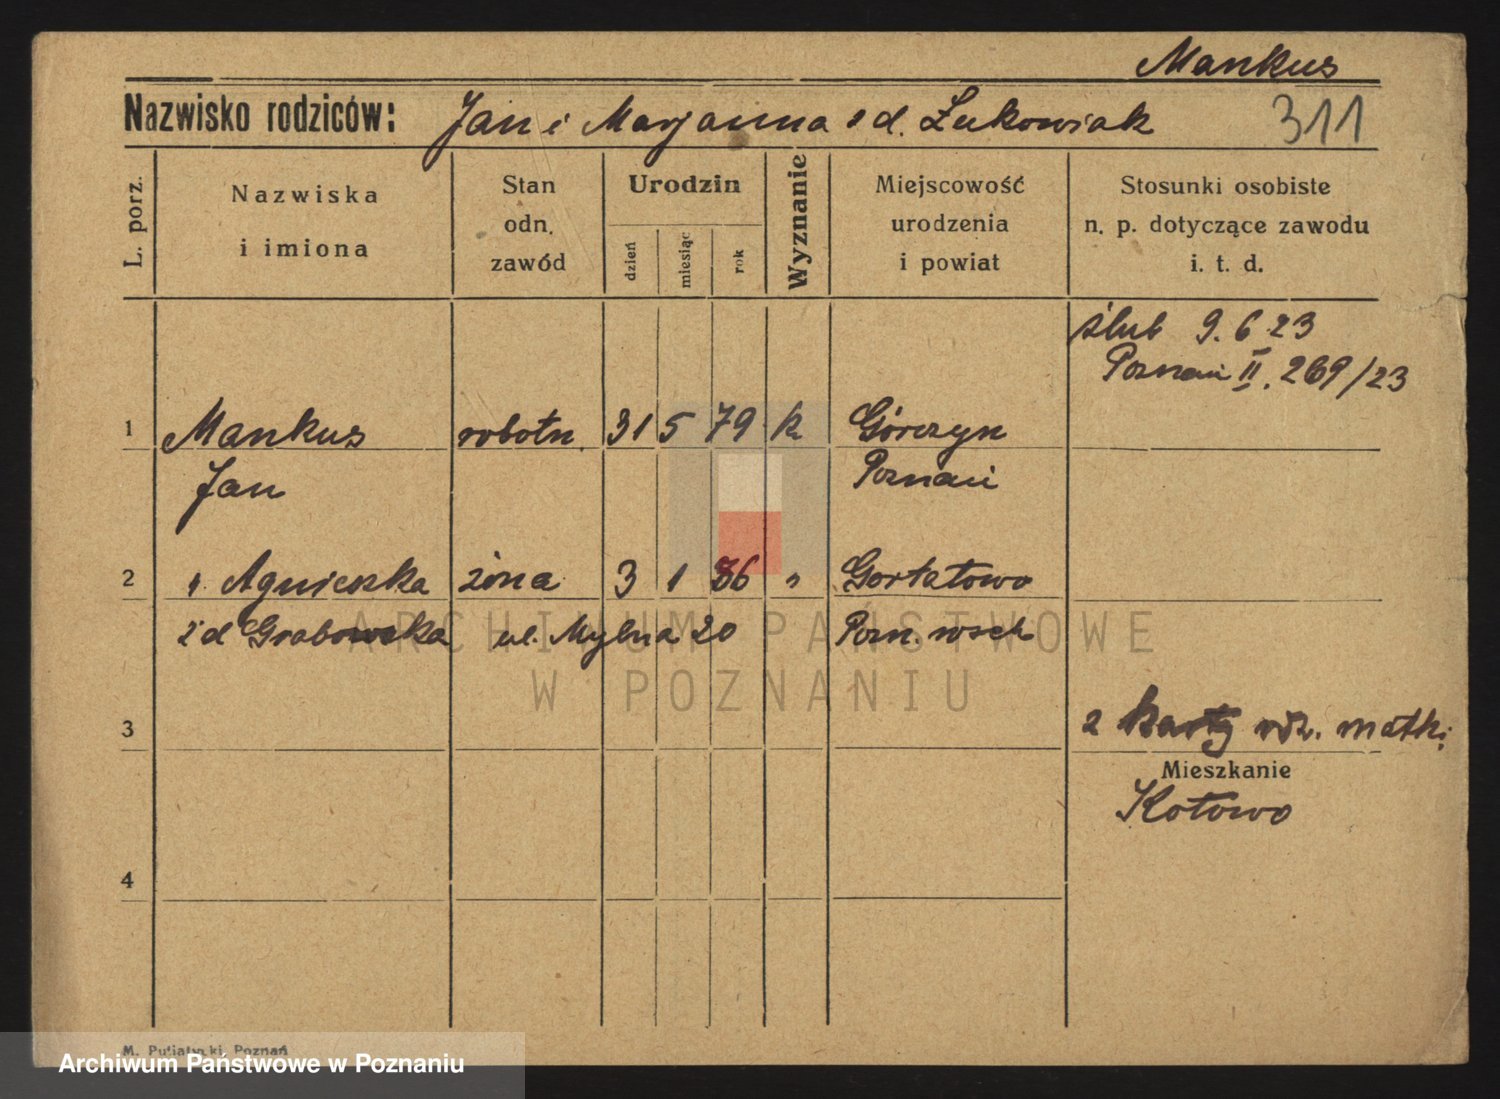 Mankus
Nazwisko rodziców: Jan i Marjanna z d. Łukowiak 311
L. porz.
Nazwiska
i imiona
Stan
odn.
zawód
Urodzin
dzień
miesiąc
rok
Wyznanie
Miejscowość
urodzenia
i powiat
Stosunki osobiste
n. p. dotyczące zawodu
i. t. d.
ślub 9.6.23
Poznań II. 269/23
1 Mankus robotn. 31 5 79 k Górczyn
Jan Poznań
2 " Agnieszka żona 3 1 86 " Gortatowo
z d Grabowska ul. Mylna 20 Pozn. wsch
3 2 karty róż. matki
Mieszkanie
Kotowo
4
M. Putiatycki, Poznań
ARCHIWUM PAŃSTWOWE
W POZNANIU
Archiwum Państwowe w Poznaniu